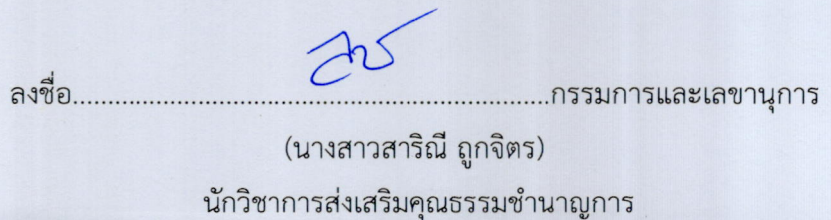 ลงชื่อ....................................................................กรรมการและเลขานุการ
(นางสาวสาริณี ถูกจิตร)
นักวิชาการส่งเสริมคุณธรรมชำนาญการ